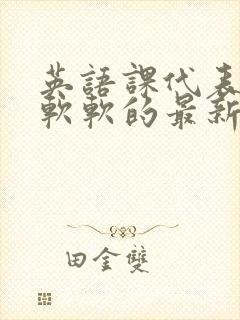 英語課代表
軟軟的最新
田金雙